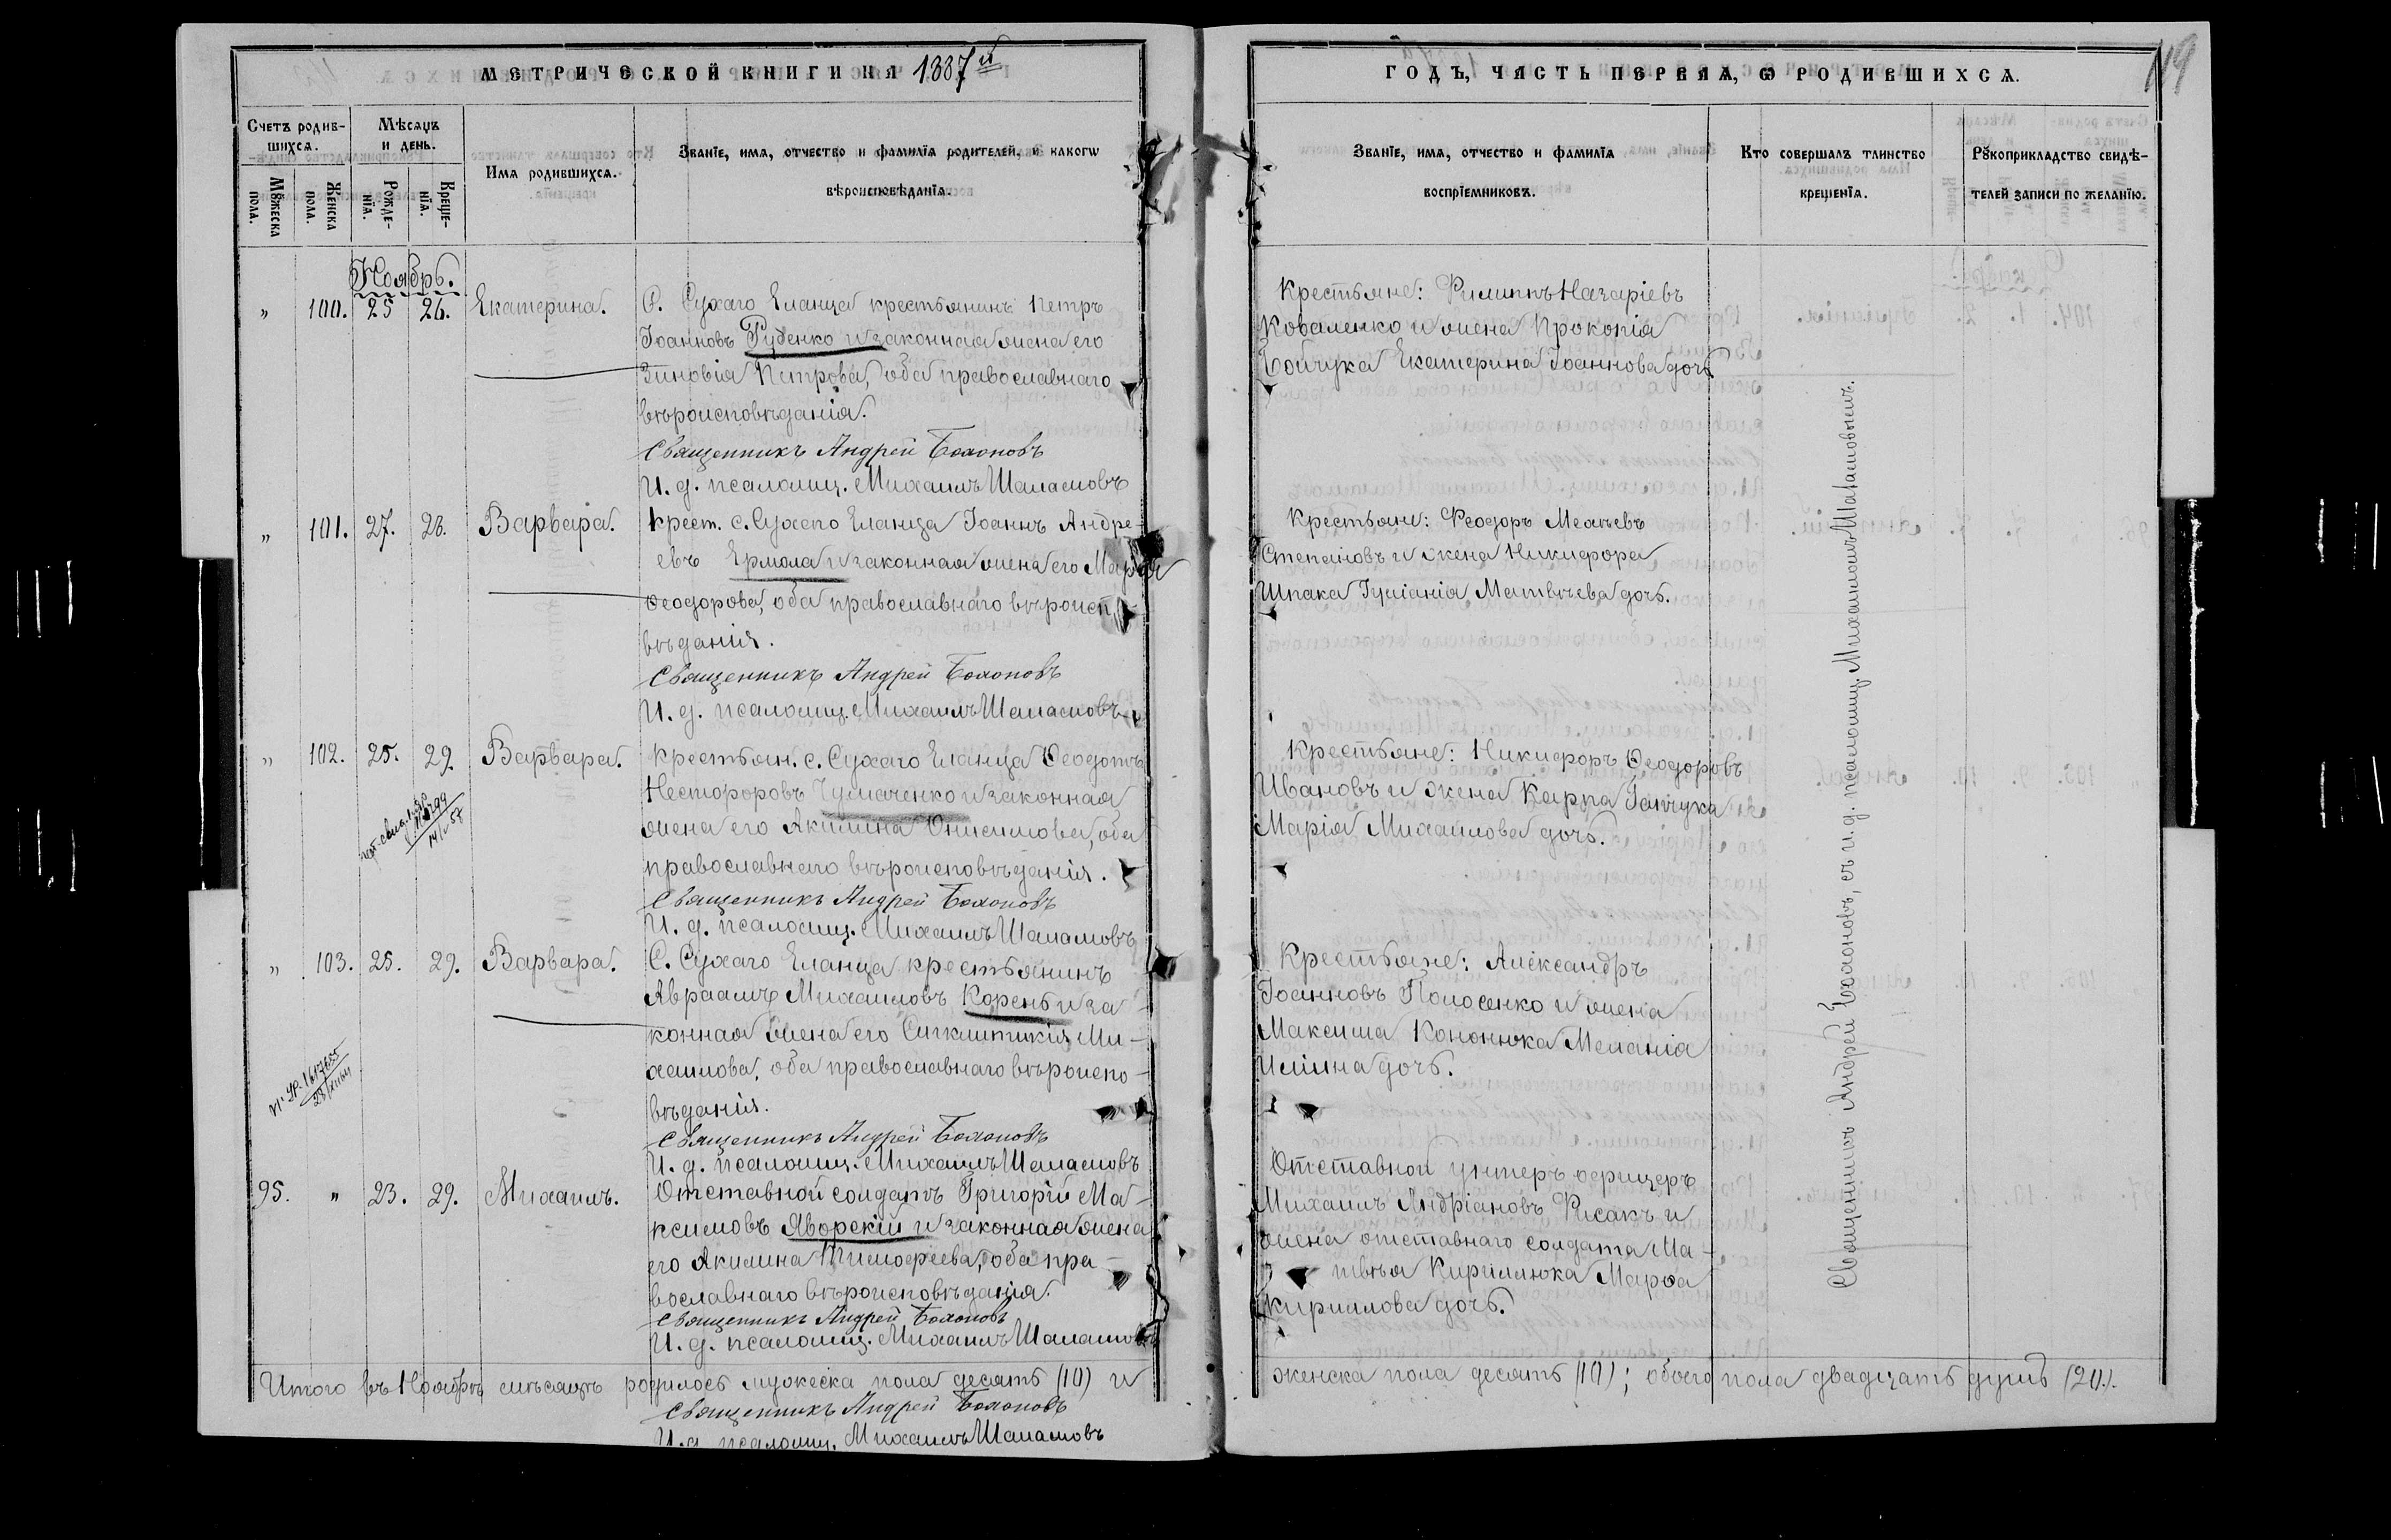 МЕТРИЧЕСКОЙ КНИГИ НА 1887й
Счетъ родив-
шихся.
Мѣсяцъ
и день.
Имя родившихся.
Званіе, имя, отчество и фамилія родителей, и какогѡ
вѣроисповѣданія.
Мꙋжеска
пола.
Женска
пола.
Рожде-
нія.
Креще-
нія.
Ноябрь.
„ 100. 25 26. Екатерина.
С. Сухаго Еланца крестьянинъ Петръ
Іоанновъ Руденко и законная жена его
Зиновія Петрова, оба православнаго
вѣроисповѣданія.
Священникъ Андрей Бохоновъ
И. д. псаломщ. Михаилъ Шаламовъ
„ 101. 27. 28. Варвара.
Крест. с. Сухаго Еланца Іоаннъ Андре-
евъ Ермола и законная жена его
Ѳеодорова, оба православнаго вѣроисп
вѣданія.
Священникъ Андрей Бохоновъ
И. д. псаломщ. Михаилъ Шаламовъ
„ 102. 25. 29. Варвара.
Крестьян. с. Сухаго Еланца Ѳеодотъ
Несторовъ Чумаченко и законная
жена его Акилина Онисимова, оба
православнаго вѣроисповѣданія.
Священникъ Андрей Бохоновъ
И. д. псаломщ. Михаилъ Шаламовъ
„ 103. 25. 29. Варвара.
С. Сухаго Еланца крестьянинъ
Авраамъ Михаиловъ Корень и за-
конная жена его Сигклитикія Ми-
хаилова, оба православнаго вѣроиспо-
вѣданія.
Священникъ Андрей Бохоновъ
И. д. псаломщ. Михаилъ Шаламовъ
95. „ 23. 29. Михаилъ.
Отставной солдатъ Григорій Ма-
ксимовъ Яворскій и законная жена
его Акилина Тимофеева, оба пра-
вославнаго вѣроисповѣданія.
Священникъ Андрей Бохоновъ
И. д. псаломщ. Михаилъ Шаламовъ
Итого въ Ноябрѣ мѣсяцѣ родилось мужеска пола десять (10) и
Священникъ Андрей Бохоновъ
И. д. псаломщ. Михаилъ Шаламовъ
119
ГОДЪ, ЧАСТЬ ПЕРВАЯ, Ѡ РОДИВШИХСЯ.
Званіе, имя, отчество и фамилія
воспріемниковъ.
Кто совершалъ таинство
крещенія.
Рꙋкоприкладство свидѣ-
телей записи по желанію.
Крестьяне: Филиппъ Назаріевъ
Коваленко и жена Прокопія
Бойчука Екатерина Іоаннова дочь.
Крестьяне: Ѳеодоръ
Степановъ и жена Никифора
Шпака Іуліанія Матвѣева дочь.
Крестьяне: Никифоръ Ѳеодоровъ
Ивановъ и жена Карпа
Марія Михаилова дочь.
Крестьяне: Александръ
Іоанновъ и жена
Максима Кононюка Меланія
Иліина дочь.
Отставной унтеръ офицеръ
Михаилъ Андріановъ Рисакъ и
жена отставнаго солдата Ма-
твѣя Кирилюка Марѳа
Кириллова дочь.
Священникъ Андрей Бохоновъ, съ и. д. псаломщ. Михаиломъ Шаламовымъ.
женска пола десять (10); обоего пола двадцать душъ (20).